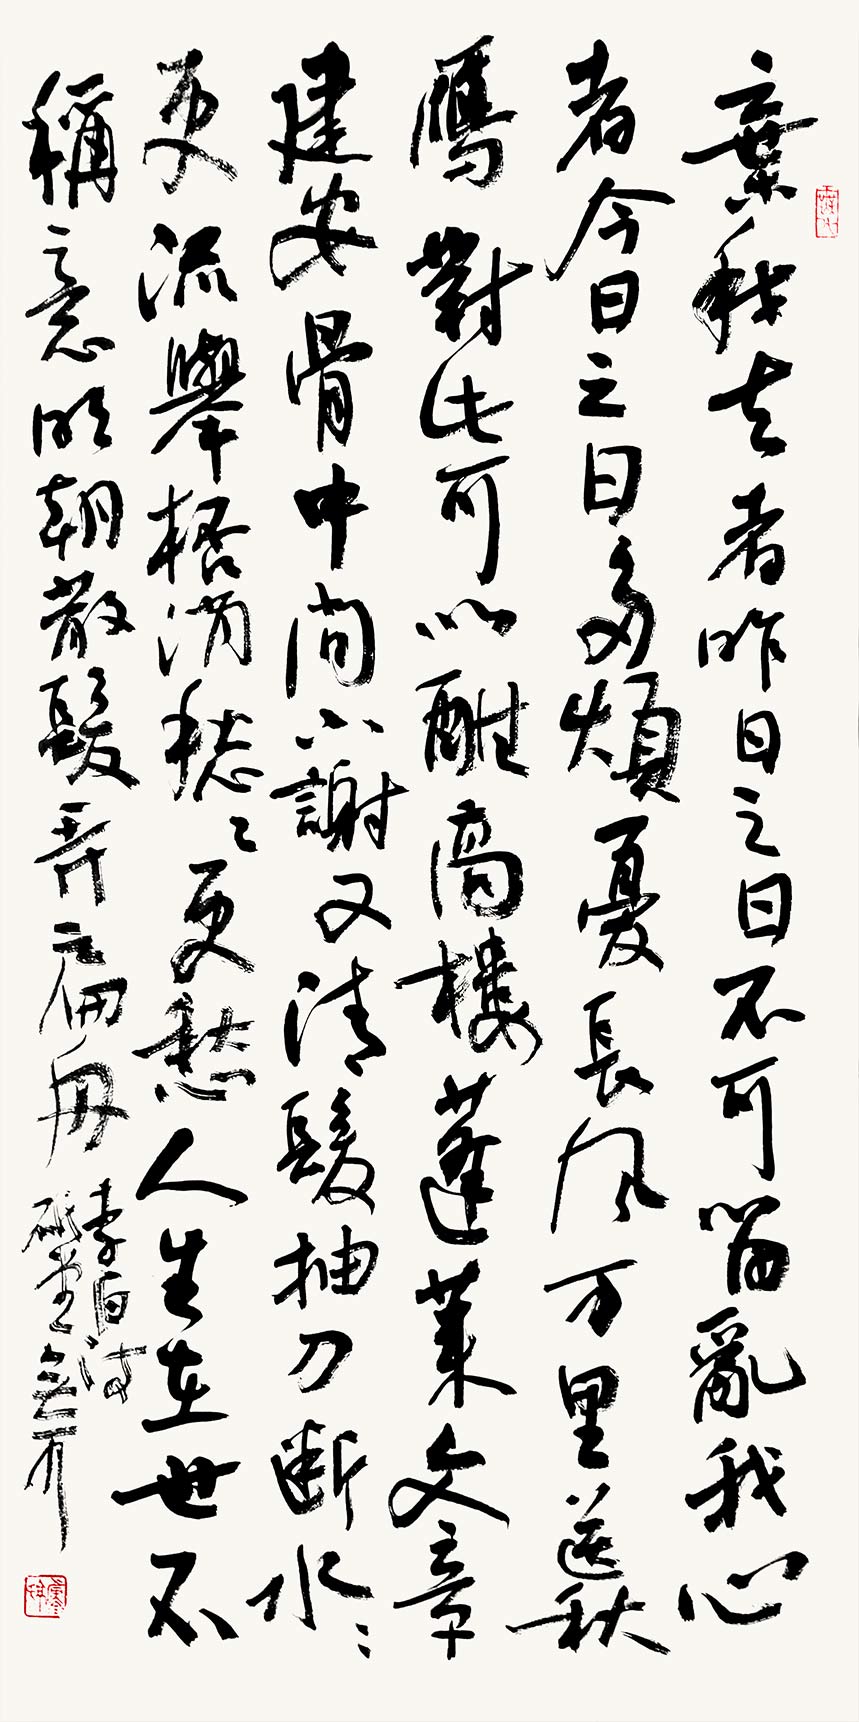 棄我去者昨日之日不可留亂我心
者今日之日多煩憂長风万里送秋
鴈對此可以酣高樓蓬萊文章
建安骨中间小謝又清發抽刀断水〻
更流舉杯消愁〻更愁人生在世不
稱意明朝散髮弄扁舟
李白诗